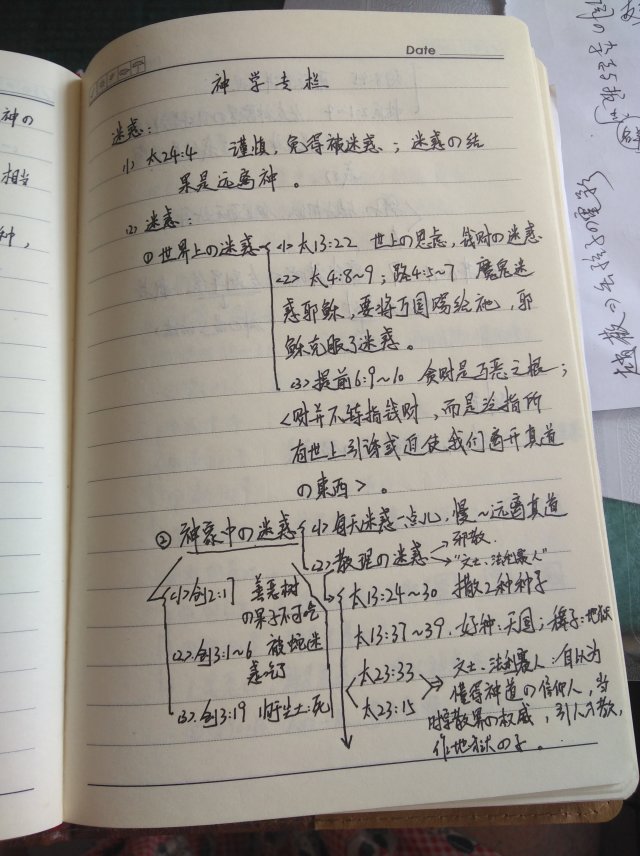 Date
神学专栏
迷惑：
<1> 太24:4 谨慎，免得被迷惑；迷惑の结
果是远离神。
<2> 迷惑：
① 世界上の迷惑 <1> 太13:22 世上の思虑，钱财の迷惑
<2> 太4:8~9；路4:5~7 魔鬼迷
惑耶稣，要将万国赐给他，耶
稣克服了迷惑。
<3> 提前6:9~10 贪财是万恶之根；
<财并不特指钱财，而是泛指所
有世上引诱或迫使我们离开真道
の東西>。
② 神家中の迷惑 <1> 每天迷惑一点儿，慢~远离真道
<2> 教理の迷惑 → 邪教
→ "文士、法利赛人"
<1> 创2:17 善恶树
の果子不可吃
<2> 创3:1~6 被蛇迷
惑吃了
<3> 创3:19 归于尘土:死
太13:24~30 撒2种种子
太13:37~39 好种:天国；稗子:地狱
太23:33
太23:15
文士、法利赛人:自以为
懂得神道の信仰人，当
时宗教界の权威，引人入教，
作地狱の子。
神の
相当
种，